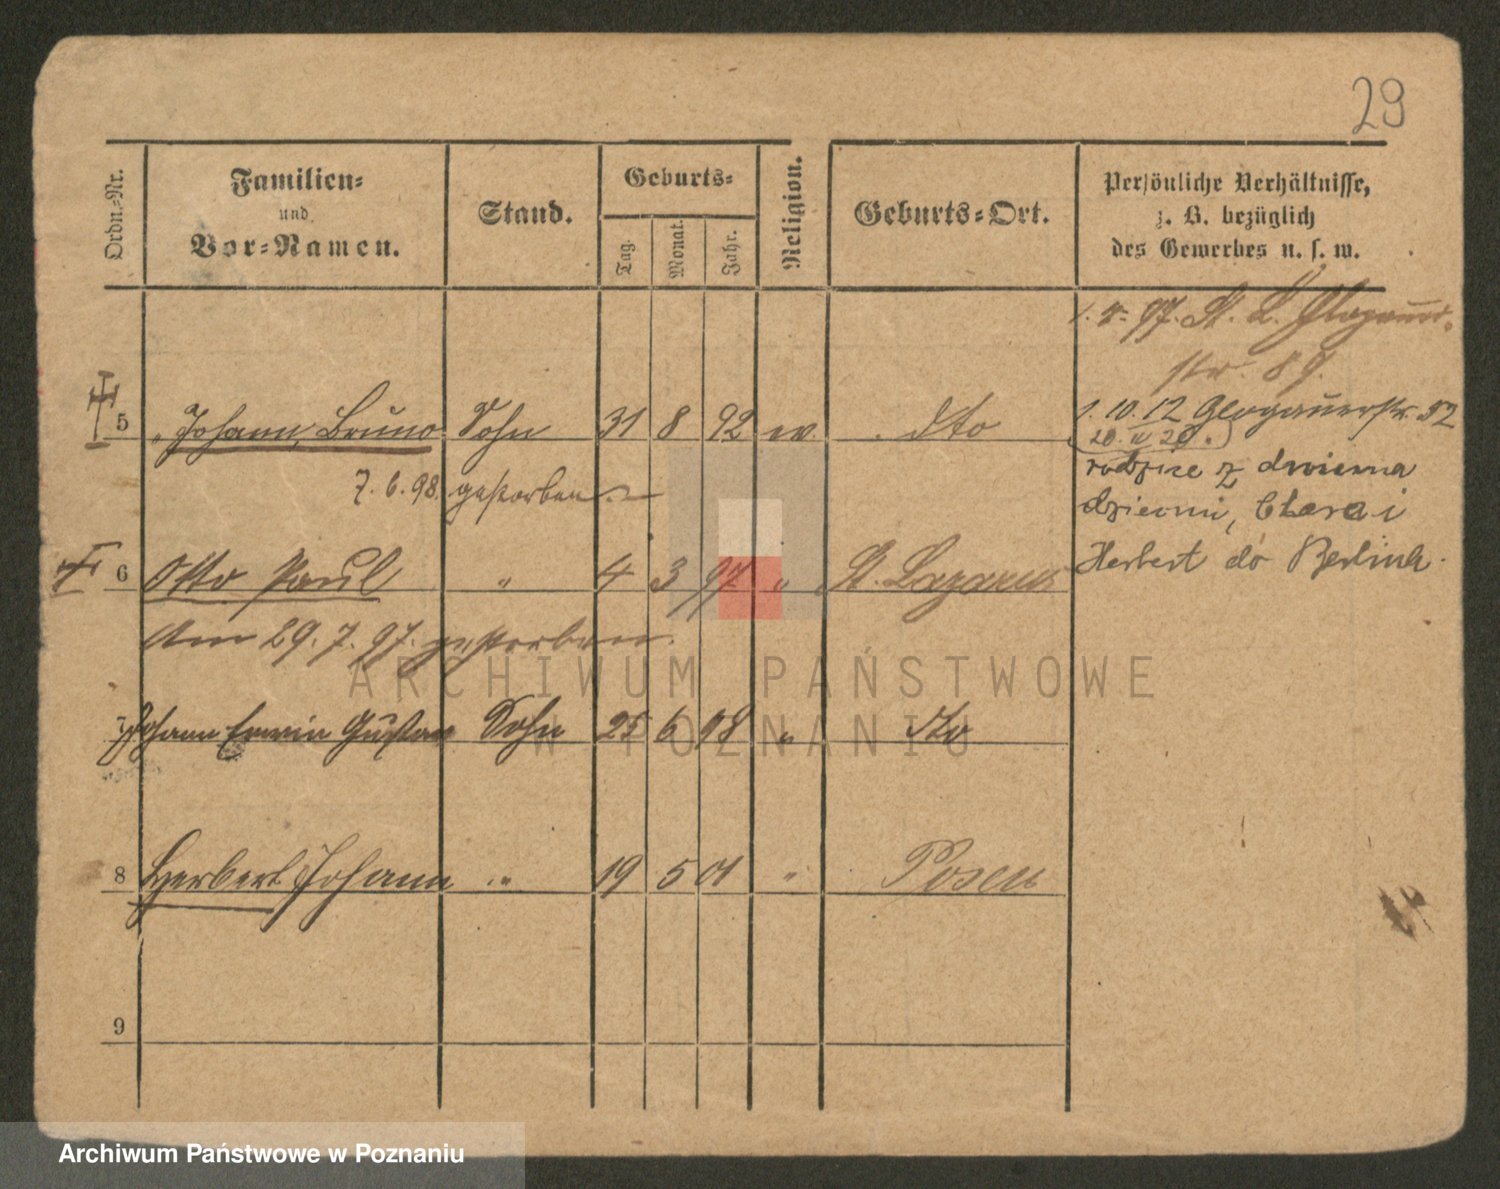 29
Ordn.-Nr. Familien- und Vor-Namen. Stand. Geburts- Tag. Monat. Jahr. Religion. Geburts-Ort. Persönliche Verhältnisse, z. B. bezüglich des Gewerbes u. s. w.
1. 4. 97. St. L. Glogauer-
str. 89.
5 Johann, Bruno Sohn 31 8 92 ev. dto 1. 10. 12 Glogauerstr. 52
(20. IV 20.)
7. 6. 98. gestorben.
rodzice z dwiema
dziećmi, Clara i
Herbert do Berlina.
6 Otto Paul " 4 3 97 " St. Lazarus
Am 29. 7. 97. gestorben.
7 Johann Erwin Gustav Sohn 25 6 98 " dto
8 Herbert Johann " 19 5 01 " Posen
9
ARCHIWUM PAŃSTWOWE
W POZNANIU
Archiwum Państwowe w Poznaniu